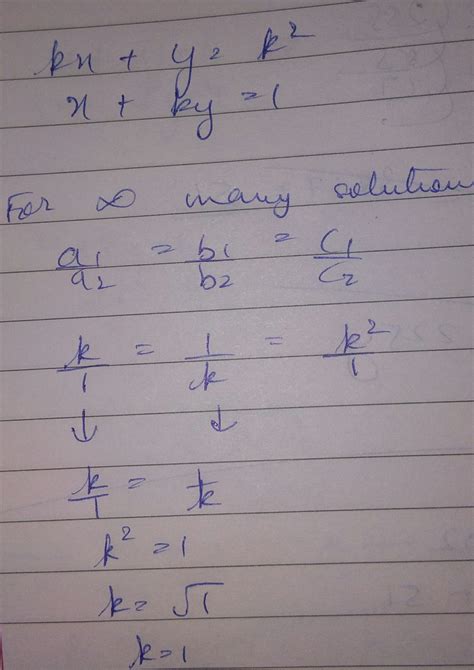 kx + y = k²
x + ky = 1
For ∞ many solution
a₁/a₂ = b₁/b₂ = C₁/C₂
k/1 = 1/k = k²/1
↓ ↓
k/1 = 1/k
k² = 1
k = √1
k = 1